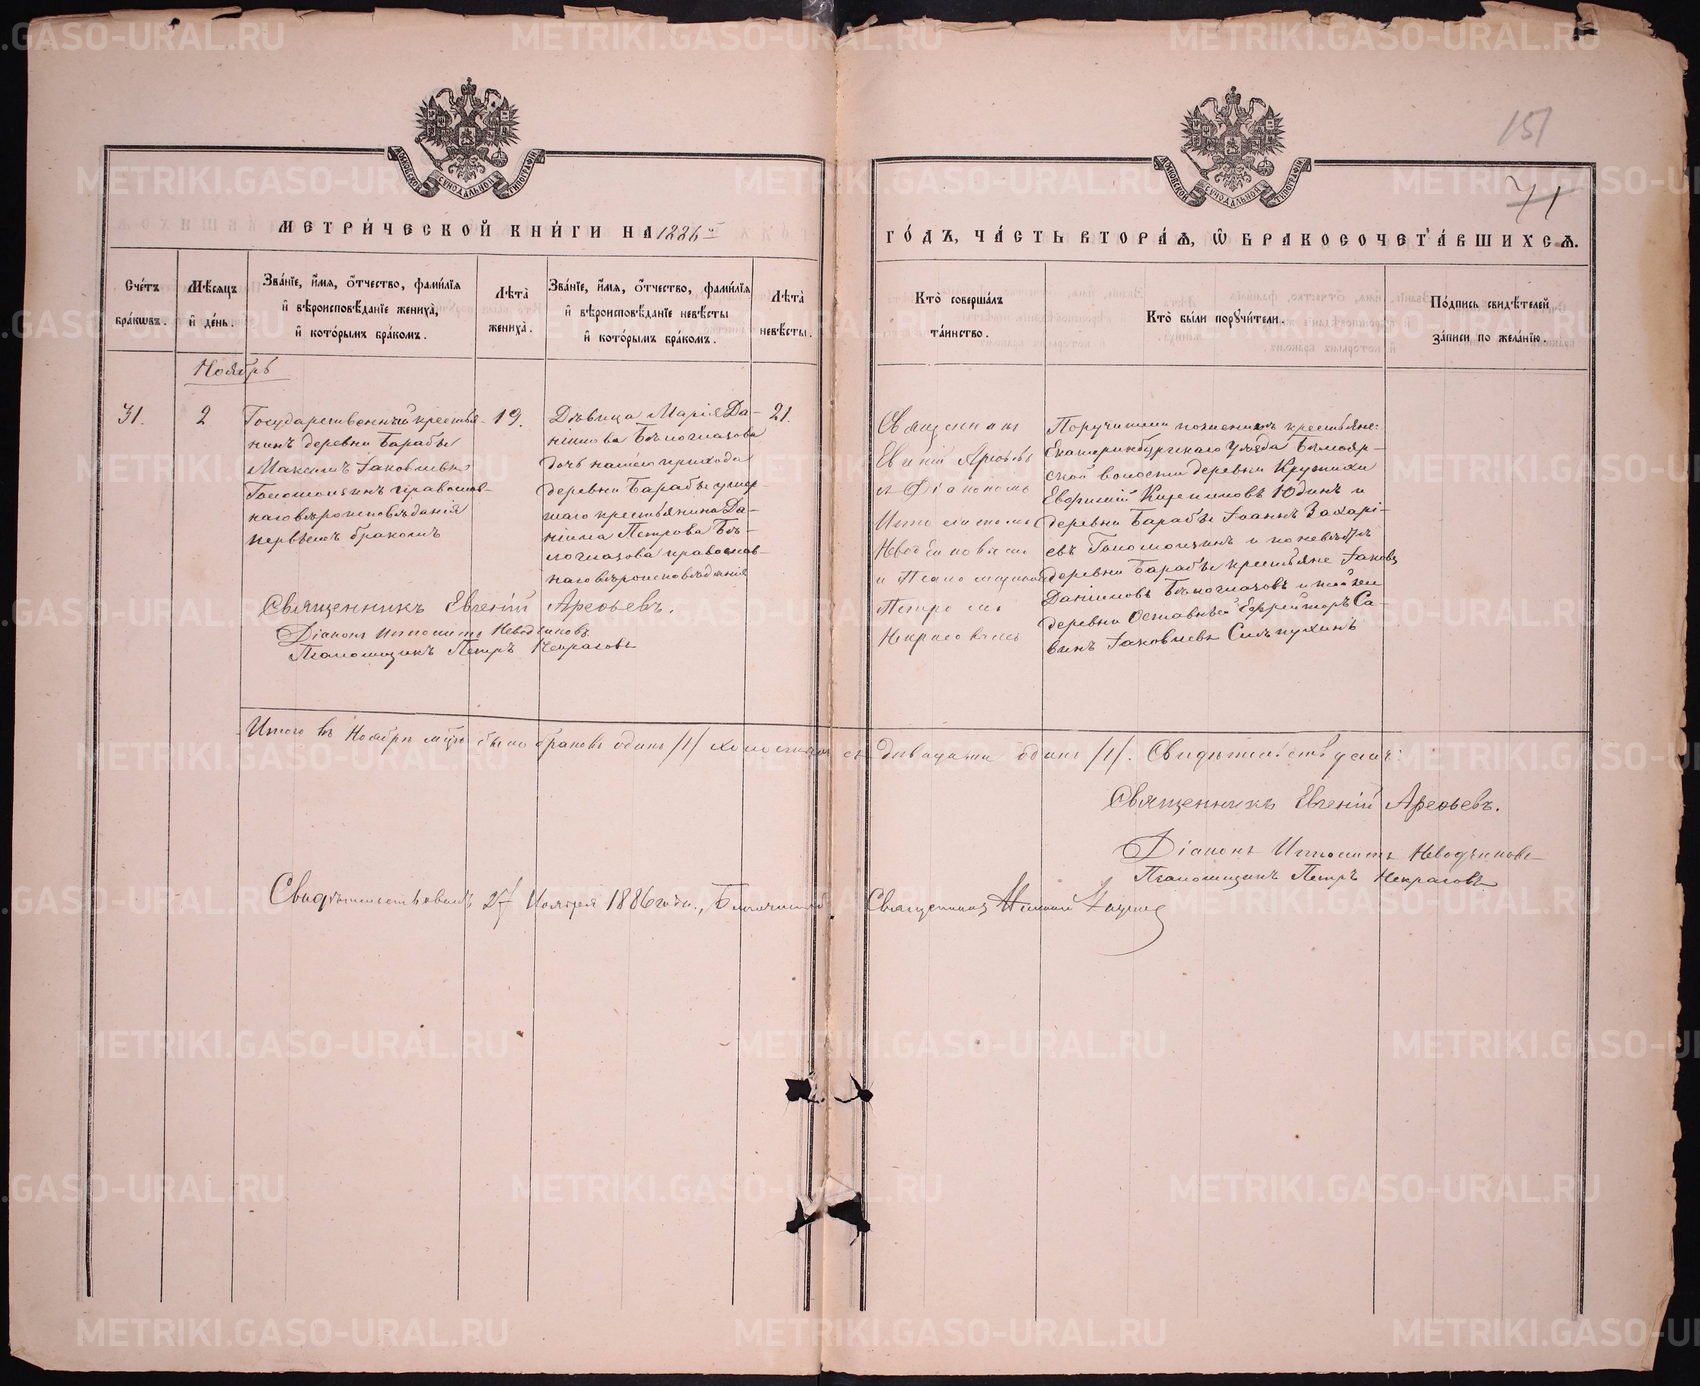 151
71
МОСКОВСКОЙ СѴНОДАЛЬНОЙ ТИПОГРАФІИ
МОСКОВСКОЙ СѴНОДАЛЬНОЙ ТИПОГРАФІИ
МЕТРИ́ЧЕСКОЙ КНИ́ГИ НА 1886 й
ГО́ДЪ, ЧА́СТЬ ВТОРА́Ѧ, Ѽ БРАКОСОЧЕТА́ВШИХСѦ.
Сче́тъ бра́кωвъ.
Мѣ́сяцъ и҆ де́нь.
Зва́нїе, и҆́мя, ѻ҆́тчество, фами́лїя
и҆ вѣроисповѣ́данїе жениха̀,
и҆ кото́рымъ бра́комъ.
Лѣта̀ жениха̀.
Зва́нїе, и҆́мя, ѻ҆́тчество, фами́лїя
и҆ вѣроисповѣ́данїе невѣ́сты
и҆ кото́рымъ бра́комъ.
Лѣта̀ невѣ́сты.
Кто̀ соверша́лъ
та́инство.
Кто̀ бы́ли порꙋчи́тели.
По́дпись свидѣ́телей
за́писи по жела́нїю.
Ноябрь
31.
2
Государственный крестья-
нинъ деревни Барабы
Максимъ Іаковлевъ
Голомолзинъ православ-
наго вѣроисповѣданія
первымъ бракомъ
19.
Дѣвица Марія Да-
ніилова Бѣлоглазова
дочь нашего прихода
деревни Барабы умер
шаго крестьянина Да-
ніила Петрова Бѣ-
логлазова православ-
наго вѣроисповѣданія
21.
Священникъ
Евгеній Арефьевъ
съ Діакономъ
Ипполитомъ
Неводчиковымъ
и Псаломщикомъ
Петромъ
Некрасовымъ
Поручители по женихѣ крестьяне:
Екатеринбургскаго уѣзда Бѣлояр-
ской волости деревни Крутихи
Евфимій Кирилловъ Юдинъ и
деревни Барабы Іоаннъ Захарі-
евъ Голомолзинъ и по невѣстѣ
деревни Барабы крестьяне Іаковъ
Даниловъ Бѣлоглазовъ и той же
деревни Отставный Ефрейторъ Са-
винъ Іаковлевъ
Священникъ Евгеній Арефьевъ.
Діаконъ Ипполитъ Неводчиковъ
Псаломщикъ Петръ Некрасовъ
Итого въ Ноябрѣ м͠цѣ было браковъ одинъ /1/ холостыхъ съ дѣвицами одинъ /1/. Свидѣтельствуемъ:
Священникъ Евгеній Арефьевъ.
Діаконъ Ипполитъ Неводчиковъ
Псаломщикъ Петръ Некрасовъ
Свидѣтельствовалъ 27 Ноября 1886 года, Благочинный Священникъ
METRIKI.GASO-URAL.RU